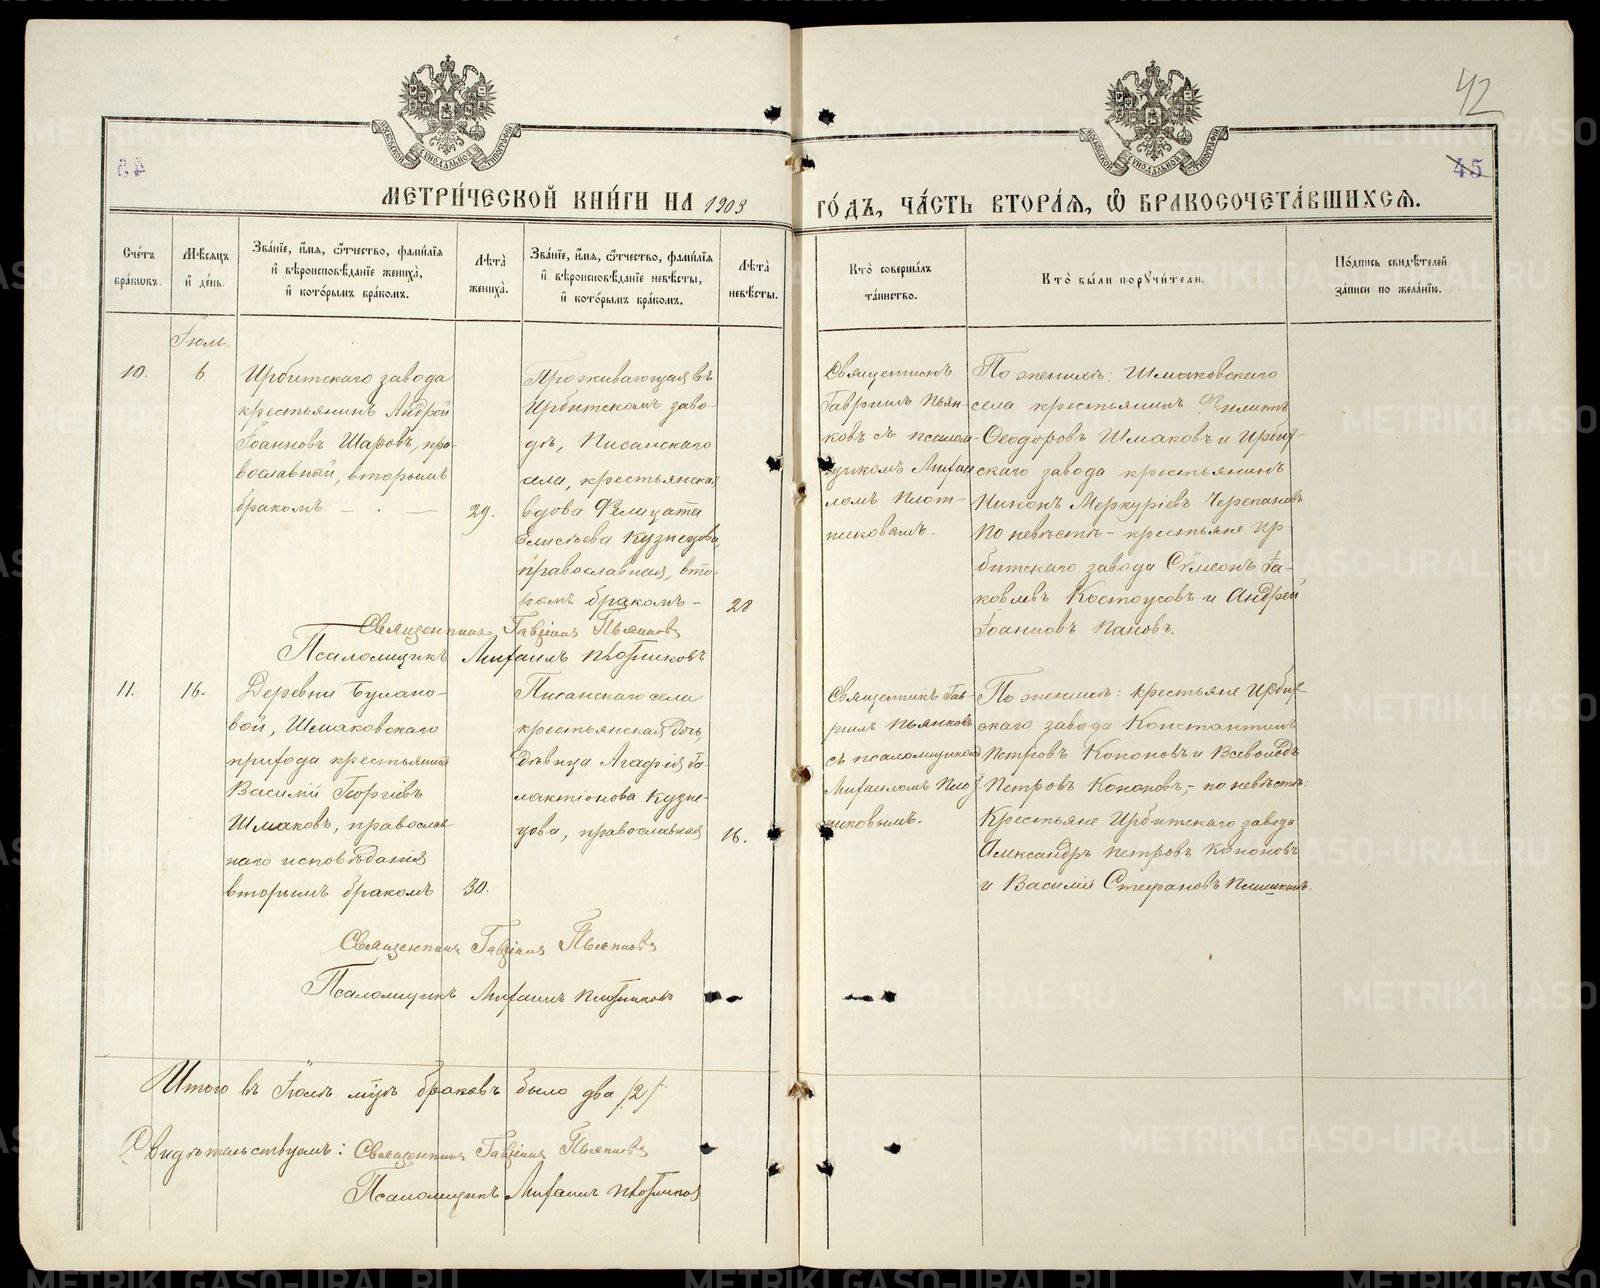 42
45
45
МЕТРИ́ЧЕСКОЙ КНИ́ГИ НА 1903 ГО́ДЪ, ЧА́СТЬ ВТОРА́Я, Ѡ҆ БРАКОСОЧЕТА́ВШИХСЯ.
Сче́тъ бра́кѡвъ.
Мѣсяцъ и҆ де́нь.
Зва́нїе, и҆́мя, ѻ҆́тчество, фами́лїя и҆ вѣроисповѣ́данїе жениха̀, и҆ кото́рымъ бра́комъ.
Лѣ́та жениха̀.
Зва́нїе, и҆́мя, ѻ҆́тчество, фами́лїя и҆ вѣроисповѣ́данїе невѣ́сты, и҆ кото́рымъ бра́комъ.
Лѣ́та невѣ́сты.
Кто̀ соверша́лъ та́инство.
Кто̀ бы́ли порꙋчи́тели.
По́дпись свидѣ́телей за́писи по жела́нїю.
Іюль.
10.
6
Ирбитскаго завода
крестьянинъ Андрей
Іоанновъ Шаровъ, пра-
вославной, вторымъ
бракомъ — . —
29.
Проживающая въ
Ирбитскомъ заво-
дѣ, Писанскаго
села, крестьянская
вдова Фелицата
Елисѣева Кузнецова,
православная, вто-
рымъ бракомъ –
28
Священникъ
Гавріилъ Пьян-
ковъ съ псалом-
щикомъ Михаи-
ломъ Плот-
никовымъ.
По женихѣ: Шмаковскаго
села крестьянинъ Филиппъ
Ѳеодоровъ Шмаковъ и Ирбит-
скаго завода крестьянинъ
Никонъ Меркуріевъ Черепановъ
По невѣстѣ – крестьяне Ир-
битскаго завода Сѵмеонъ Іа-
ковлевъ Костоусовъ и Андрей
Іоанновъ Пановъ.
Священникъ Гавріилъ Пьянковъ
Псаломщикъ Михаилъ Плотниковъ
11.
16.
Деревни Булано-
вой, Шмаковскаго
прихода крестьянинъ
Василій Георгіевъ
Шмаковъ, православ-
наго исповѣданія
вторымъ бракомъ
30.
Писанскаго села
крестьянская дочь,
дѣвица Агафія Га-
лактіонова Кузне-
цова, православная
16.
Священникъ Гав-
ріилъ Пьянковъ
съ псаломщикомъ
Михаиломъ Плот-
никовымъ.
По женихѣ: крестьяне Ирбит-
скаго завода Константинъ
Петровъ Кононовъ и Всеволодъ
Петровъ Кононовъ, – по невѣстѣ:
Крестьяне Ирбитскаго завода
Александръ Петровъ Кононовъ
и Василій Стефановъ
Священникъ Гавріилъ Пьянковъ
Псаломщикъ Михаилъ Плотниковъ
Итого въ Іюлѣ мцѣ браковъ было два /2/
Свидѣтельствуемъ: Священникъ Гавріилъ Пьянковъ
Псаломщикъ Михаилъ Плотниковъ
METRIKI.GASO-URAL.RU